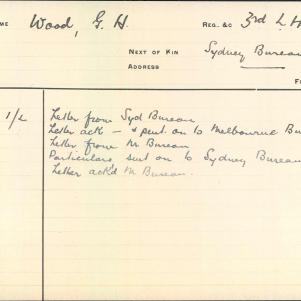 ME Wood, G. H. REG. &C 3rd L H
NEXT OF KIN Sydney Bureau
ADDRESS
F
1/2 Letter from Syd Bureau
Letter ack - & sent on to Melbourne Bu
Letter from M. Bureau
Particulars sent on to Sydney Bureau
Letter ack'd M Bureau.